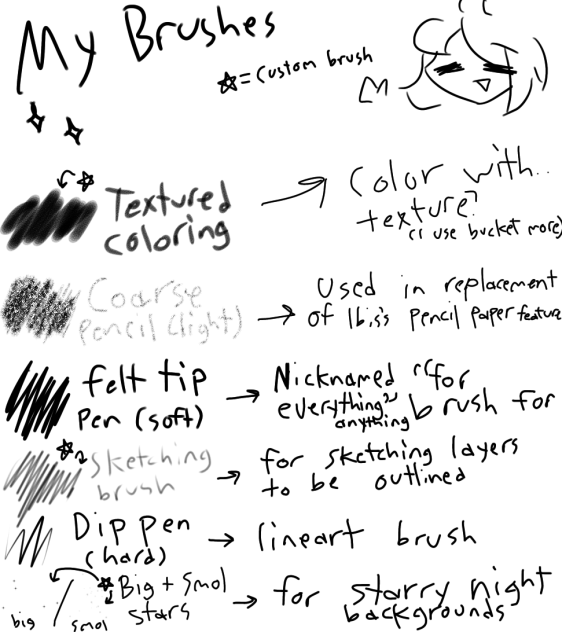 My Brushes
☆ = Custom brush
Textured coloring → Color with.. texture?
(i use bucket more)
Coarse pencil (light) → Used in replacement of Ibis's pencil paper feature
felt tip pen (soft) → Nicknamed "for everything" brush for anything
Sketching brush → for sketching layers to be outlined
Dip pen (hard) → lineart brush
Big + Smol stars → for starry night backgrounds
big
smol